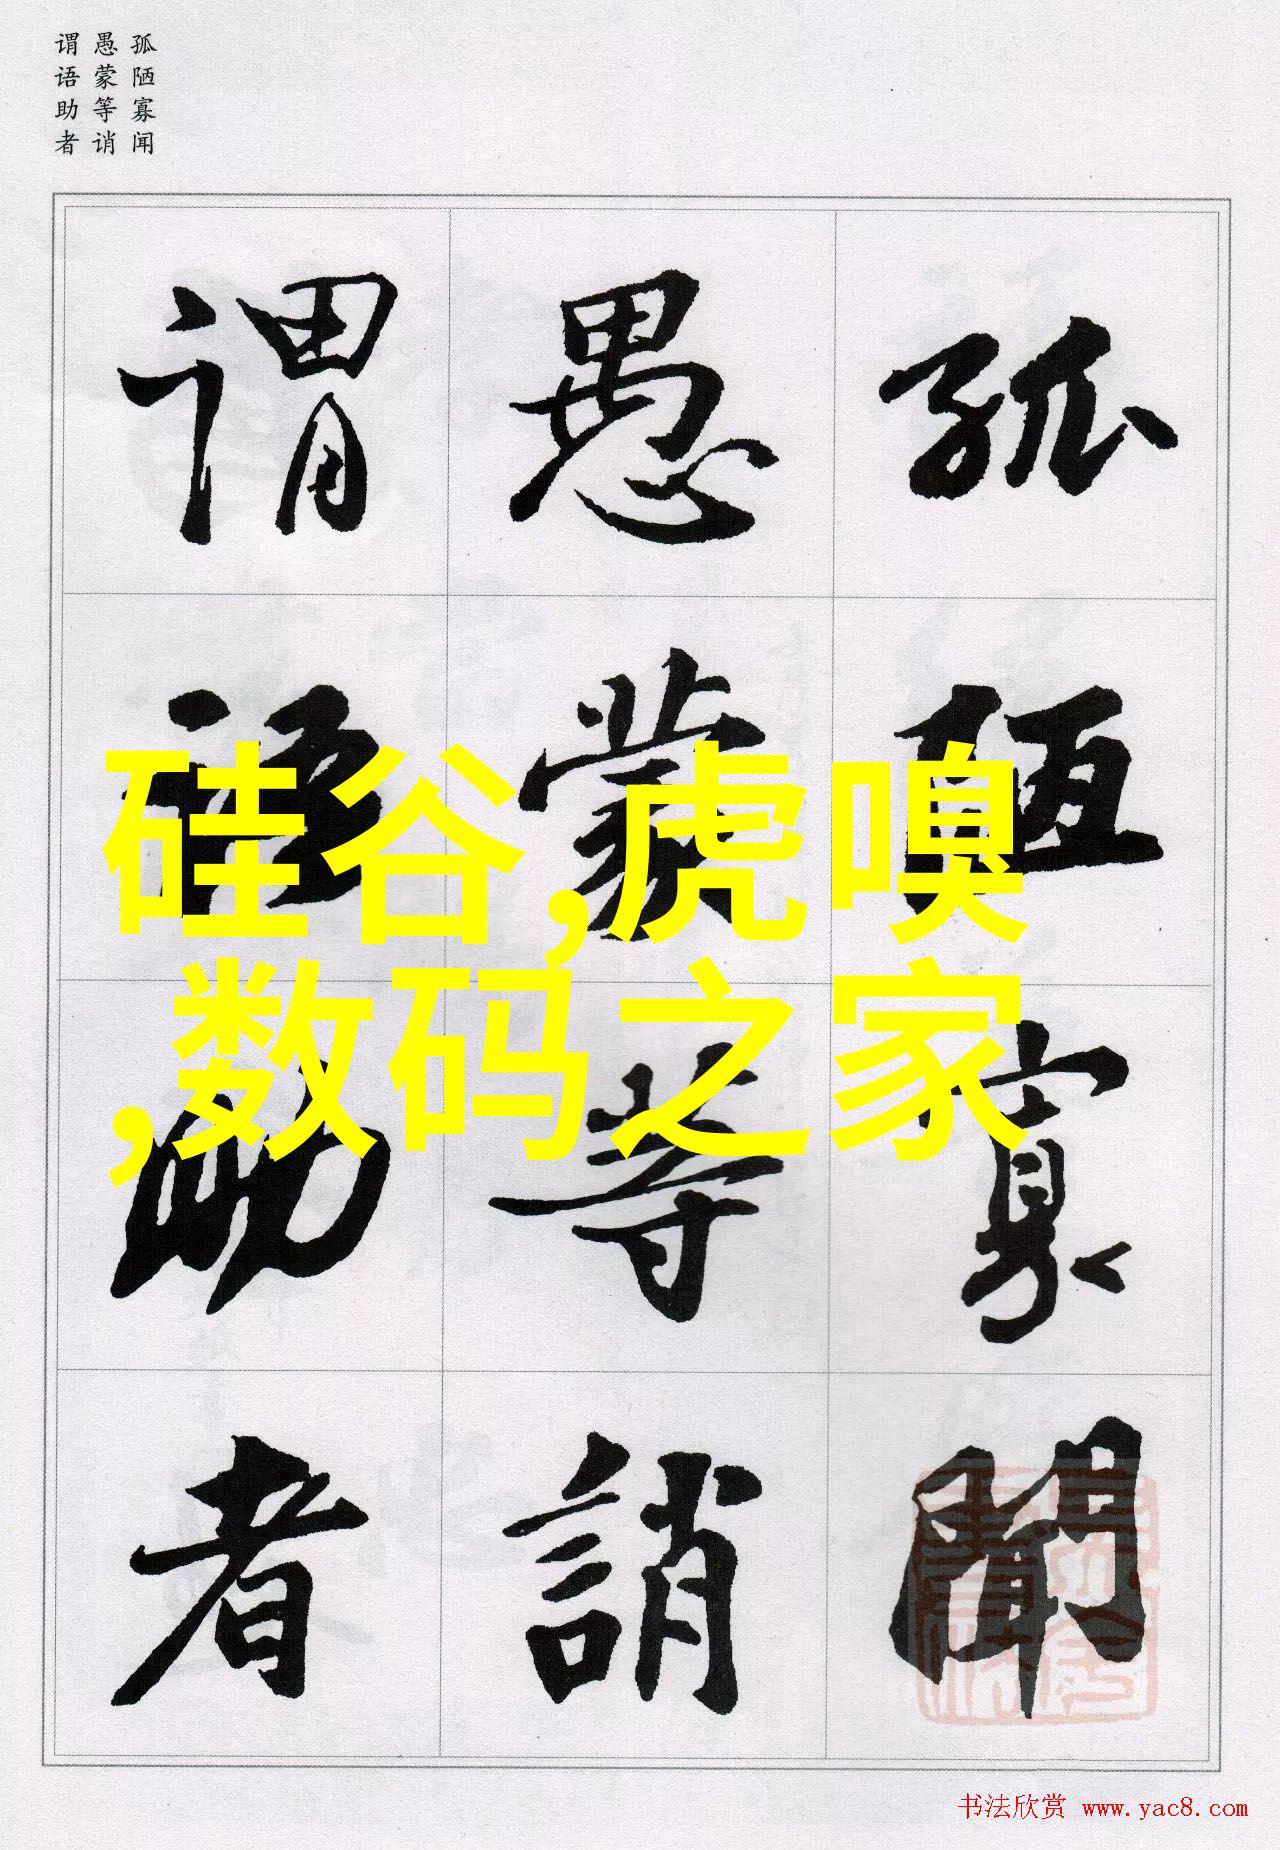 孤陋寡闻
愚蒙等诮
谓语助者
孤陋寡聞
愚蒙等誚
谓语助者
硅谷,虎嗅
,数码之家
书法欣赏 www.yac8.com